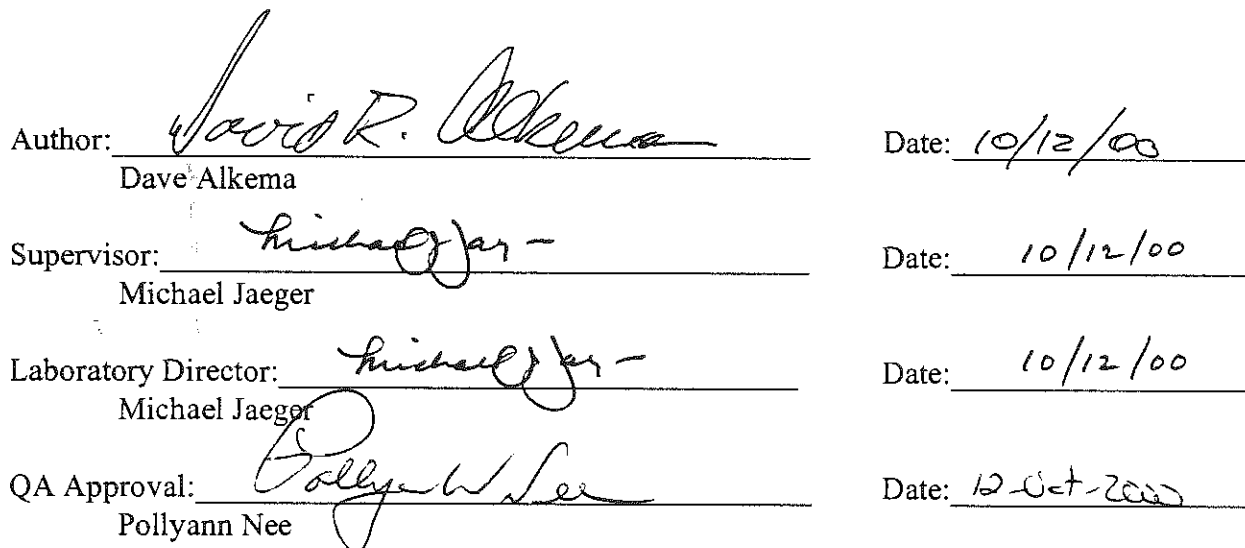 Author: David R. Alkema Date: 10/12/00
Dave Alkema
Supervisor: Michael J Jaeger Date: 10/12/00
Michael Jaeger
Laboratory Director: Michael J Jaeger Date: 10/12/00
Michael Jaeger
QA Approval: Pollyann W Nee Date: 12-Oct-2000
Pollyann Nee